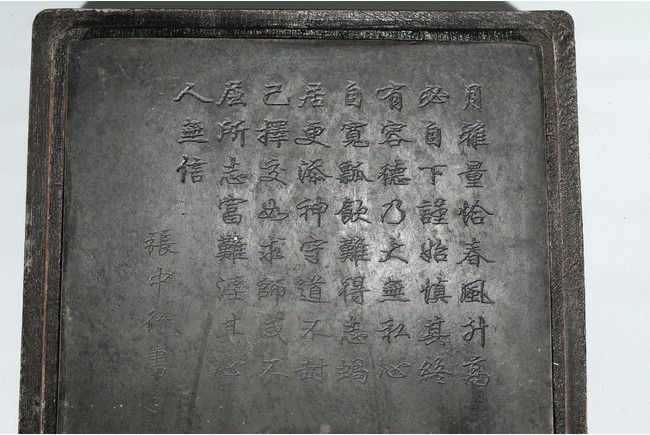 月雅量恰春風升高
必自下謹始慎其終
有容德乃大無私心
自寬瓢飲難得志蝸
居更添神守道不封
己擇交如求師威不
屈所志富難淫其心
人無信
張中行書